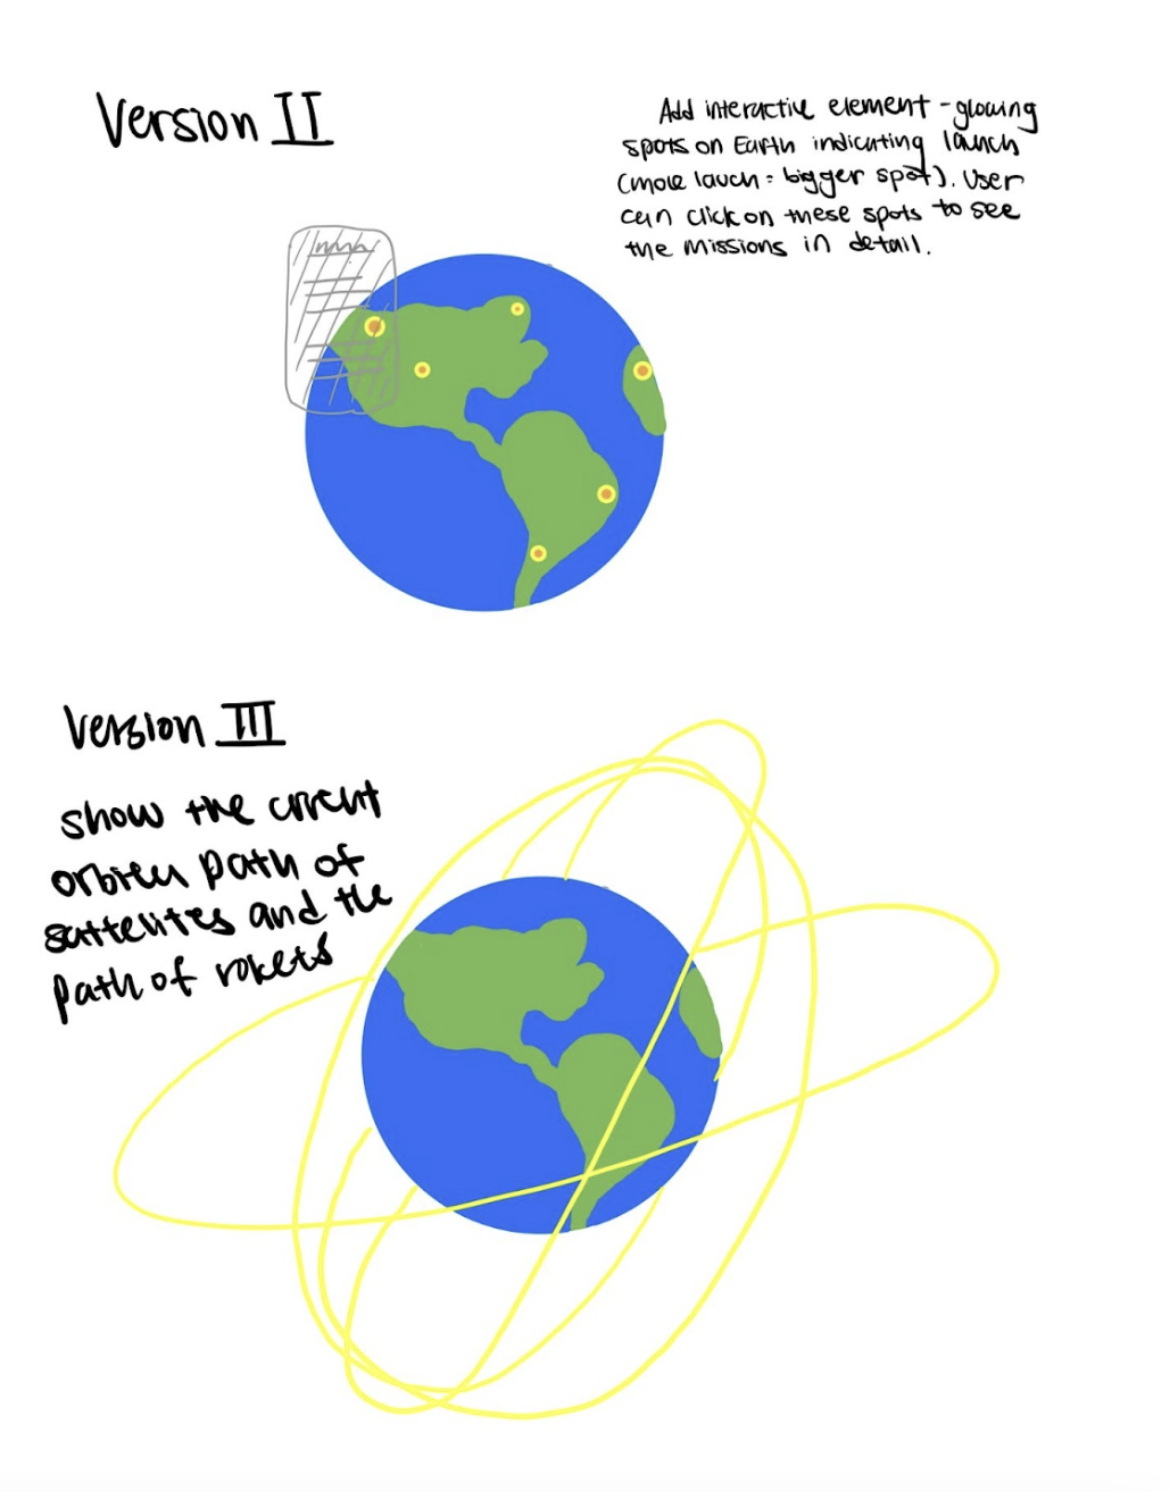 Version II
Add interactive element - glowing
spots on Earth indicating launch
(more lauch = bigger spot). User
can click on these spots to see
the missions in detail.
Version III
show the current
orbital path of
sattelites and the
path of rokets